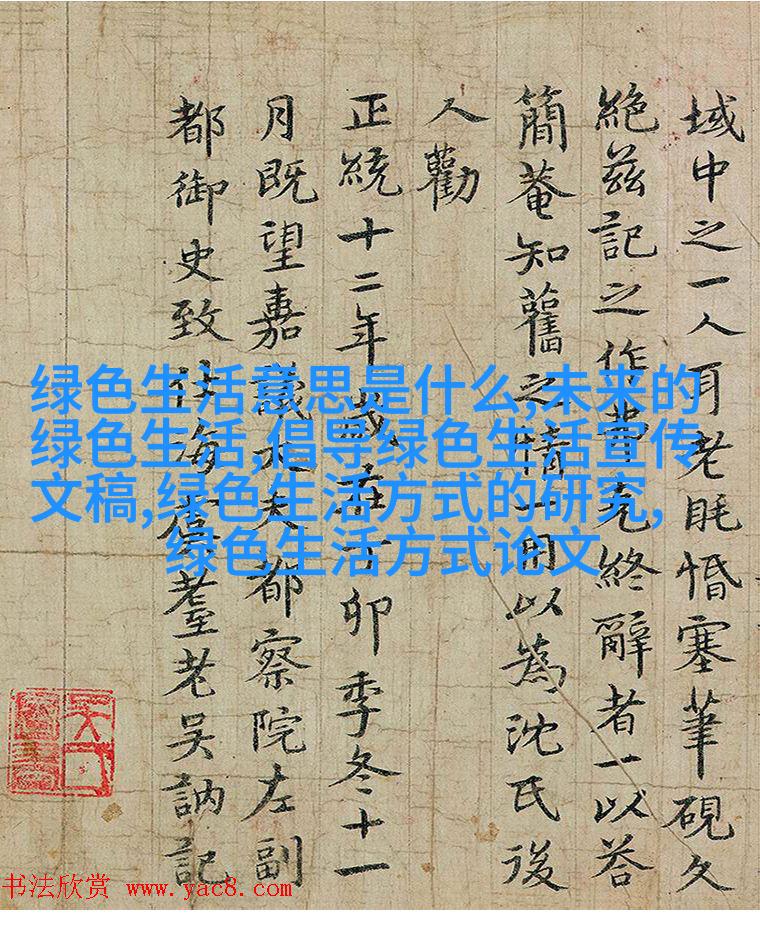 域中之一人耳老眊惛塞筆硯久
絶茲記之作克終辭者一以荅
簡菴知舊之情一用以為沈氏後
人勸
正統十二年歲在丁卯季冬十一
月既望嘉議大夫都察院左副
都御史致仕海虞耋老吳訥記
绿色生活意思是什么,未来的
绿色生活,倡导绿色生活宣传
文稿,绿色生活方式的研究,
绿色生活方式论文
书法欣赏 www.yac8.com